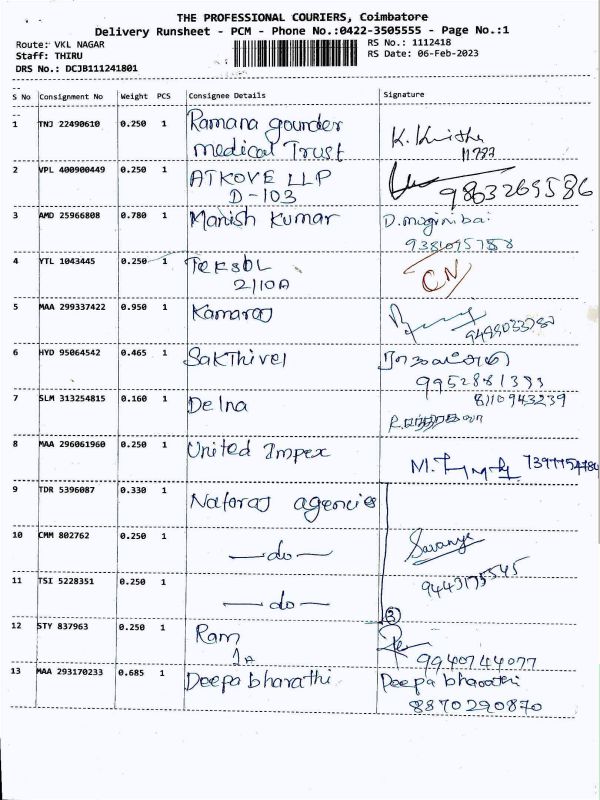 THE PROFESSIONAL COURIERS, Coimbatore
Delivery Runsheet - PCM - Phone No.:0422-3505555 - Page No.:1
Route: VKL NAGAR
RS No.: 1112418
Staff: THIRU
RS Date: 06-Feb-2023
DRS No.: DCJB111241801
S No Consignment No Weight PCS Consignee Details Signature
1 TNJ 22490610 0.250 1 Ramana gounder
medical Trust
K.
2 VPL 400900449 0.250 1 ATKOVE LLP
D-103
9863269586
3 AMD 25966808 0.780 1 Manish Kumar D.moginibai
4 YTL 1043445 0.250 1
2/10A
CN
5 MAA 299337422 0.950 1 Kamaraj
6 HYD 95064542 0.465 1 Sakthivel
9952881393
7 SLM 313254815 0.160 1 Delna 8110943239
8 MAA 296061960 0.250 1 United Impex M.
9 TDR 5396087 0.330 1 Nataraj agencies
10 CMM 802762 0.250 1 —do— Saranya
11 TSI 5228351 0.250 1 —do— 9443175545
3
12 STY 837963 0.250 1 Ram
1A
9940744077
13 MAA 293170233 0.685 1 Deepabharathi Deepabharathi
8870290870